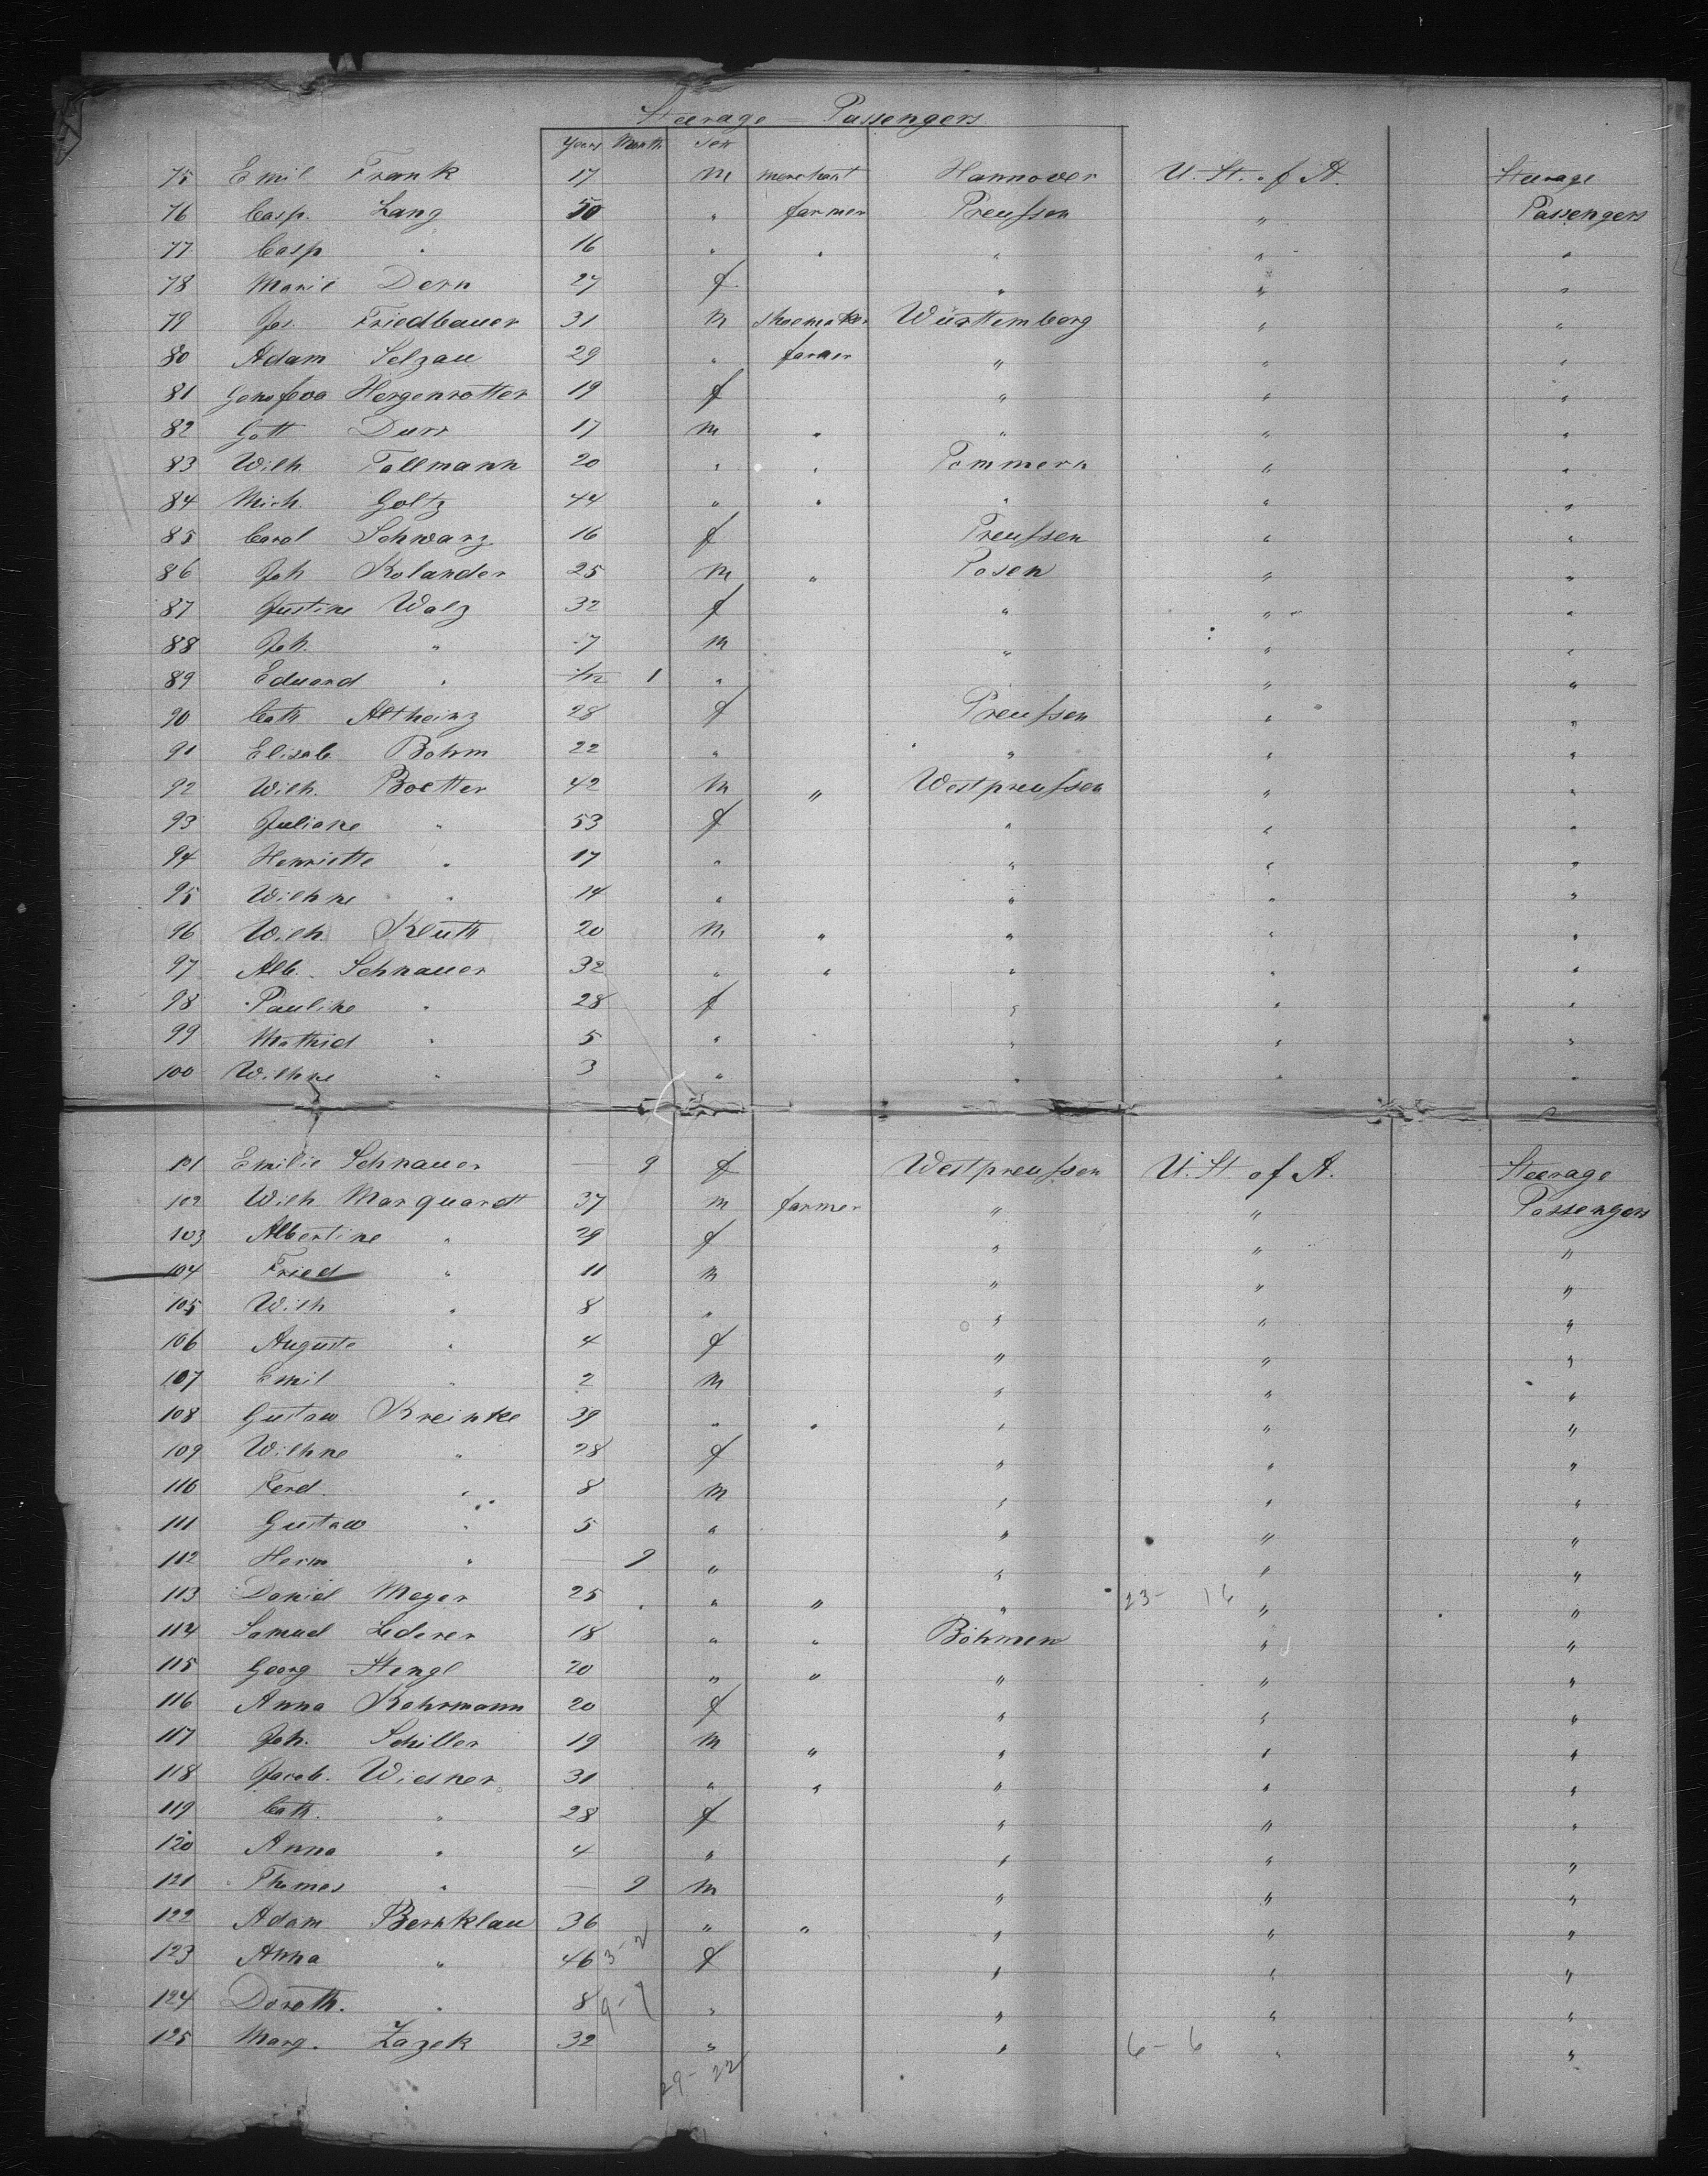 Steerage — Passengers
Years Month Sex
75 Emil Frank 17 m merchant Hannover U. St. of A. Steerage
76 Casp. Lang 50 " farmer Preußen " Passengers
77 Casp " 16 " " " " "
78 Marie Dern 27 f " " "
79 Jos. Friedbauer 31 m shoemaker Württemberg " "
80 Adam Selzau 29 " farmer " " "
81 Genofeva Hergenrotter 19 f " " "
82 Gott Durr 17 m " " " "
83 Wilh. Tallmann 20 " " Pommern " "
84 Mich. Goltz 44 " " " " "
85 Carol Schwarz 16 f Preußen " "
86 Joh Kolander 25 m " Posen " "
87 Justine Walz 32 f " " "
88 Joh. " 7 m " " "
89 Eduard " 1/12 1 " " " "
90 Cath Altheinz 28 f Preußen " "
91 Elisab. Bohm 22 " " " "
92 Wilh. Boetter 42 m " Westpreußen " "
93 Juliane " 53 f " " "
94 Henriette " 17 " " " "
95 Wilhne " 14 " " " "
96 Wilh. Kluth 20 m " " " "
97 Alb. Schnauer 32 " " " " "
98 Pauline " 28 f " " "
99 Mathild " 5 " " " "
100 Wilhne " 3 " " " "
101 Emilie Schnauer — 9 f Westpreußen U. St. of A. Steerage
102 Wilh Marquardt 37 m farmer " " Passengers
103 Albertine " 29 f " " "
104 Fried " 11 m " " "
105 Wilh " 8 " " " "
106 Auguste " 4 f " " "
107 Emil " 2 m " " "
108 Gustaw Kreinke 39 " " " " "
109 Wilhne " 28 f " " "
110 Ferd. " 8 m " " "
111 Gustaw " 5 " " " "
112 Herm " — 9 " " " "
113 Daniel Meyer 25 " " " 23- 16 " "
114 Samuel Lederer 18 " " Böhmen " "
115 Georg Stengl 20 " " " " "
116 Anna Kohrmann 20 f " " "
117 Joh. Schiller 19 m " " " "
118 Jacob. Wiesner 31 " " " " "
119 Cath. " 28 f " " "
120 Anna " 4 " " " "
121 Thomas " — 9 m " " "
122 Adam Bernklau 36 " " " " "
123 Anna " 46 3-2 f " " "
124 Doroth. " 8 9-7 " " " "
125 Marg. Zazek 32 " " 6-6 " "
29-22